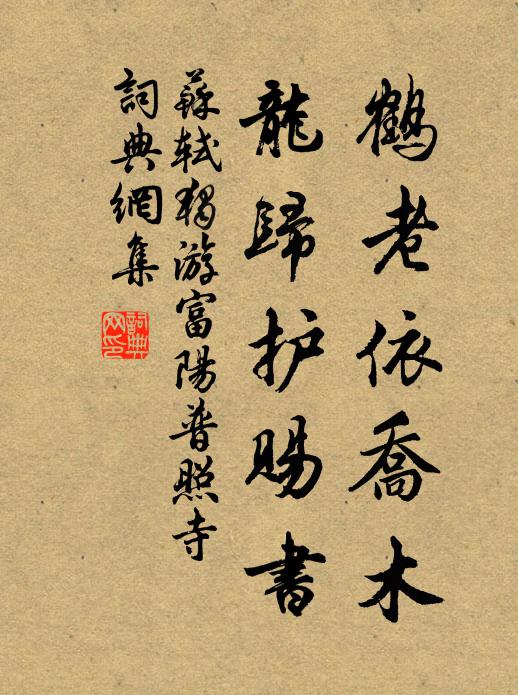 鶴老依喬木
龍歸护賜書
蘇軾獨游富陽普照寺
詞典網集
詞典網印